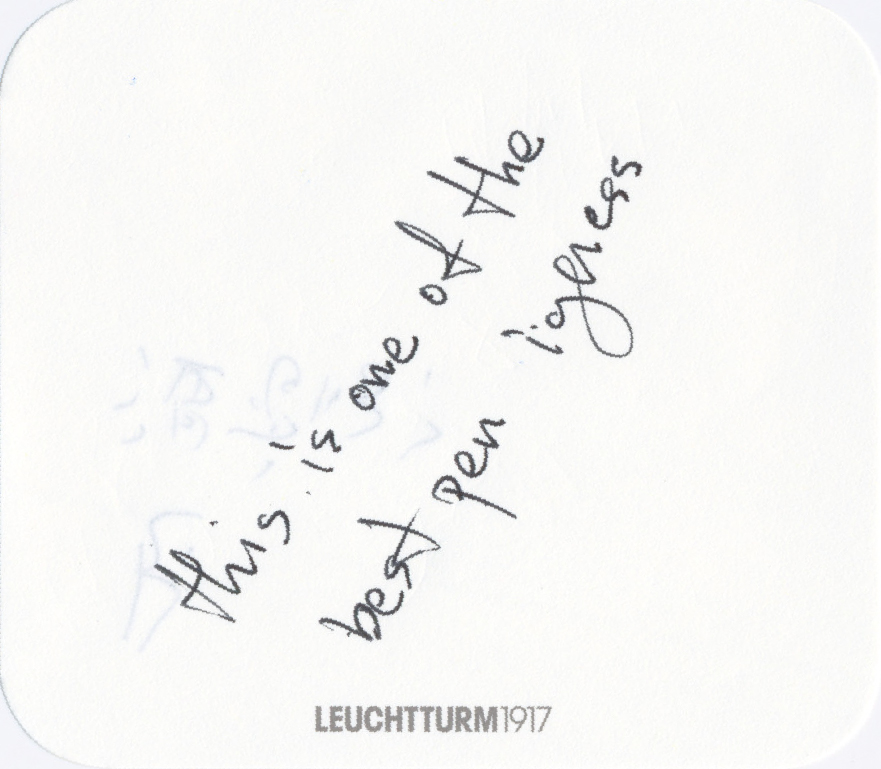 this is one of the
best pen
LEUCHTTURM1917